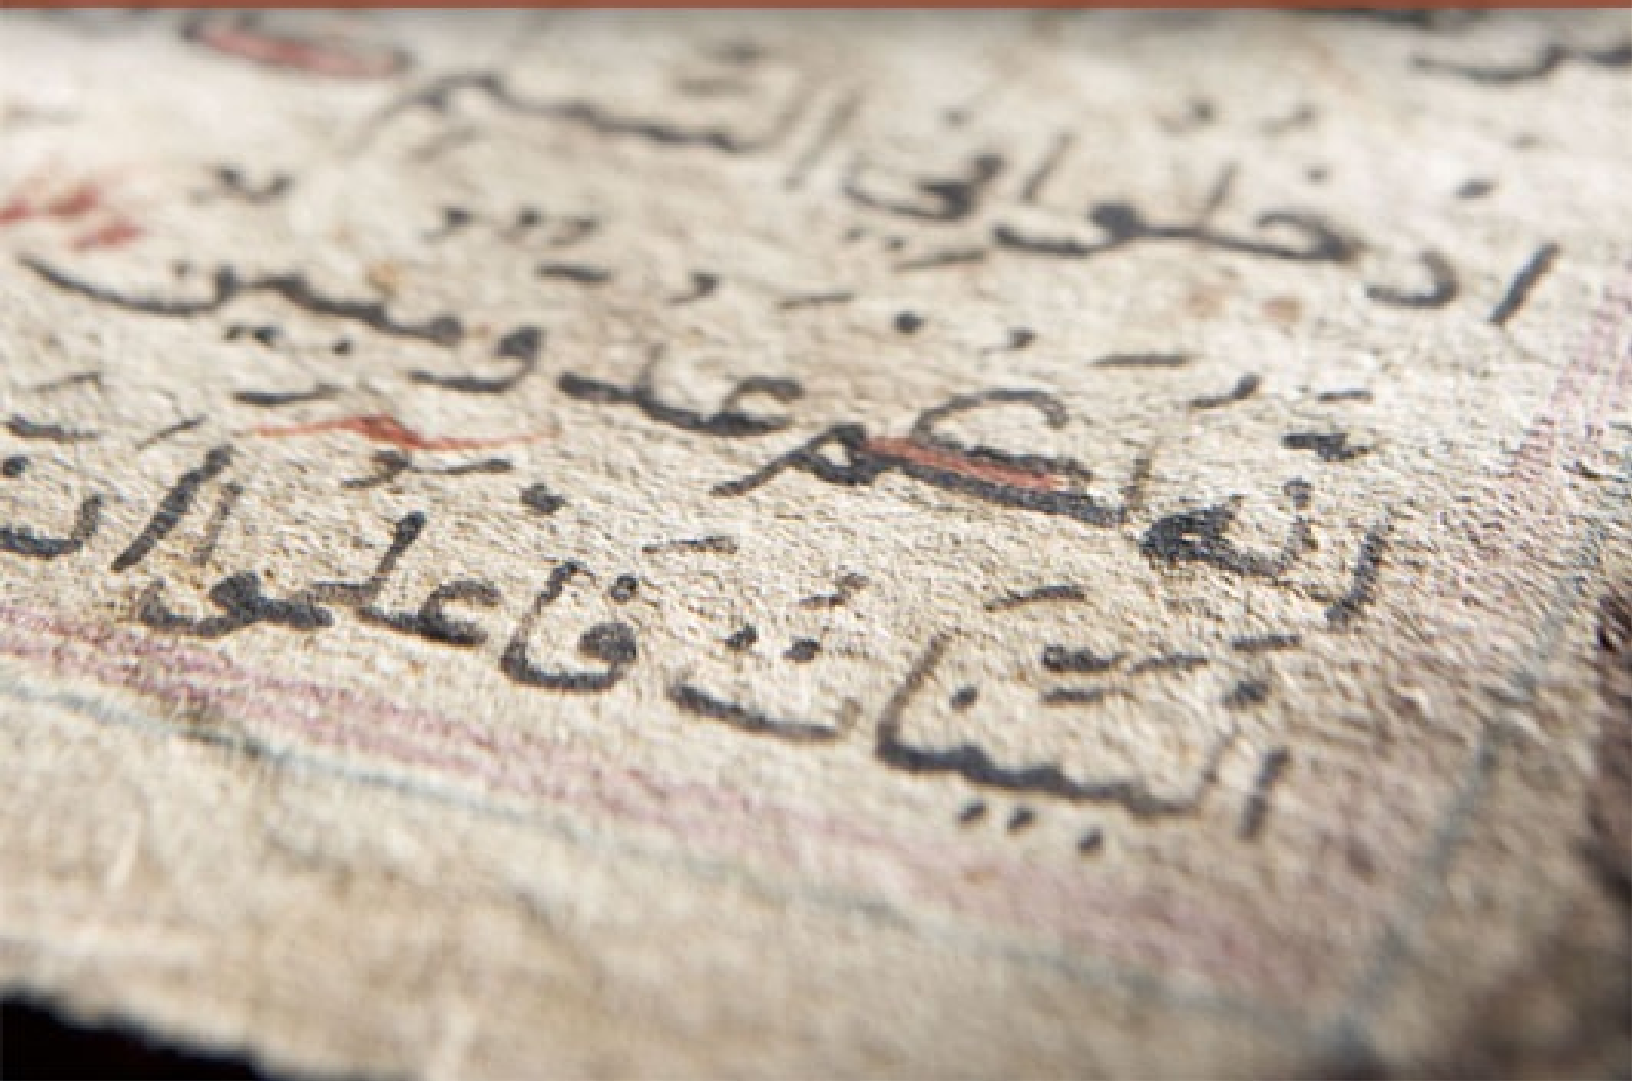 ادخلوا في السلم
انه لكم عدو مبين
البينات فاعلموا ان